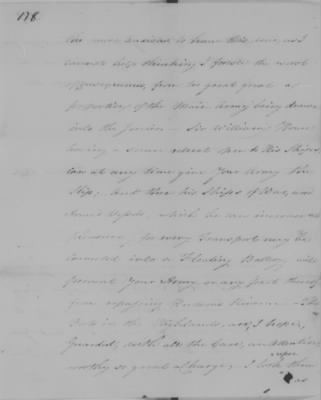 178.
the more anxious to have this done, as I
cannot help thinking I foresee the worst
of Consequences, from too great a
proportion of the Main Army being drawn
into the Jerseies — Sir William Howe
having a secure retreat open to His Ships
can at any time give your Army the
Slip; and then his Ships of War, and
Armed Vessels, which he can
for every Transport may be
converted into a Floating Battery will
prevent Your Army or any part thereof
from repassing Hudsons River — The
Forts in the Highlands, are, I hope,
Guarded, with all the Care, and Attention,
worthy so great a Charge, I look upon
them as